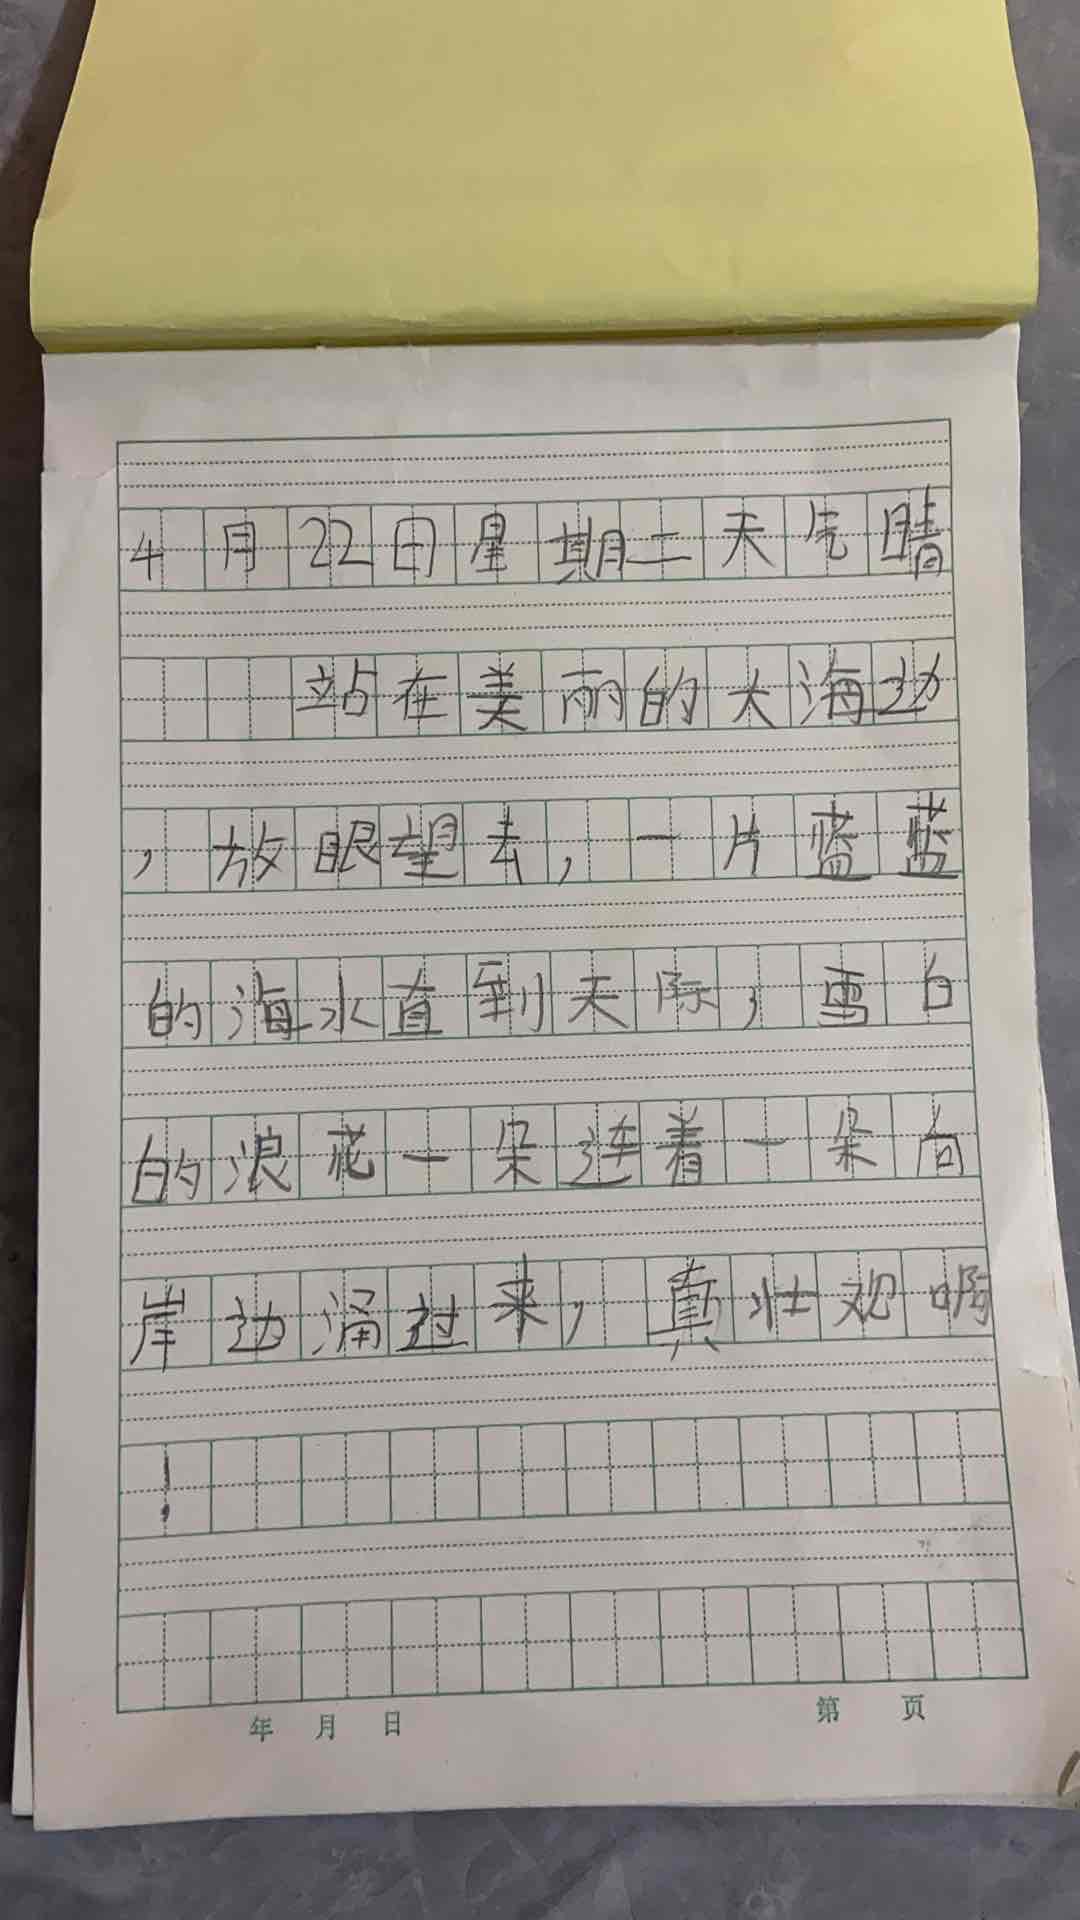 4月22日星期二天气晴
站在美丽的大海边
，放眼望去，一片蓝蓝
的海水直到天际，雪白
的浪花一朵连着一朵向
岸边涌过来，真壮观啊
！
年 月 日 第 页